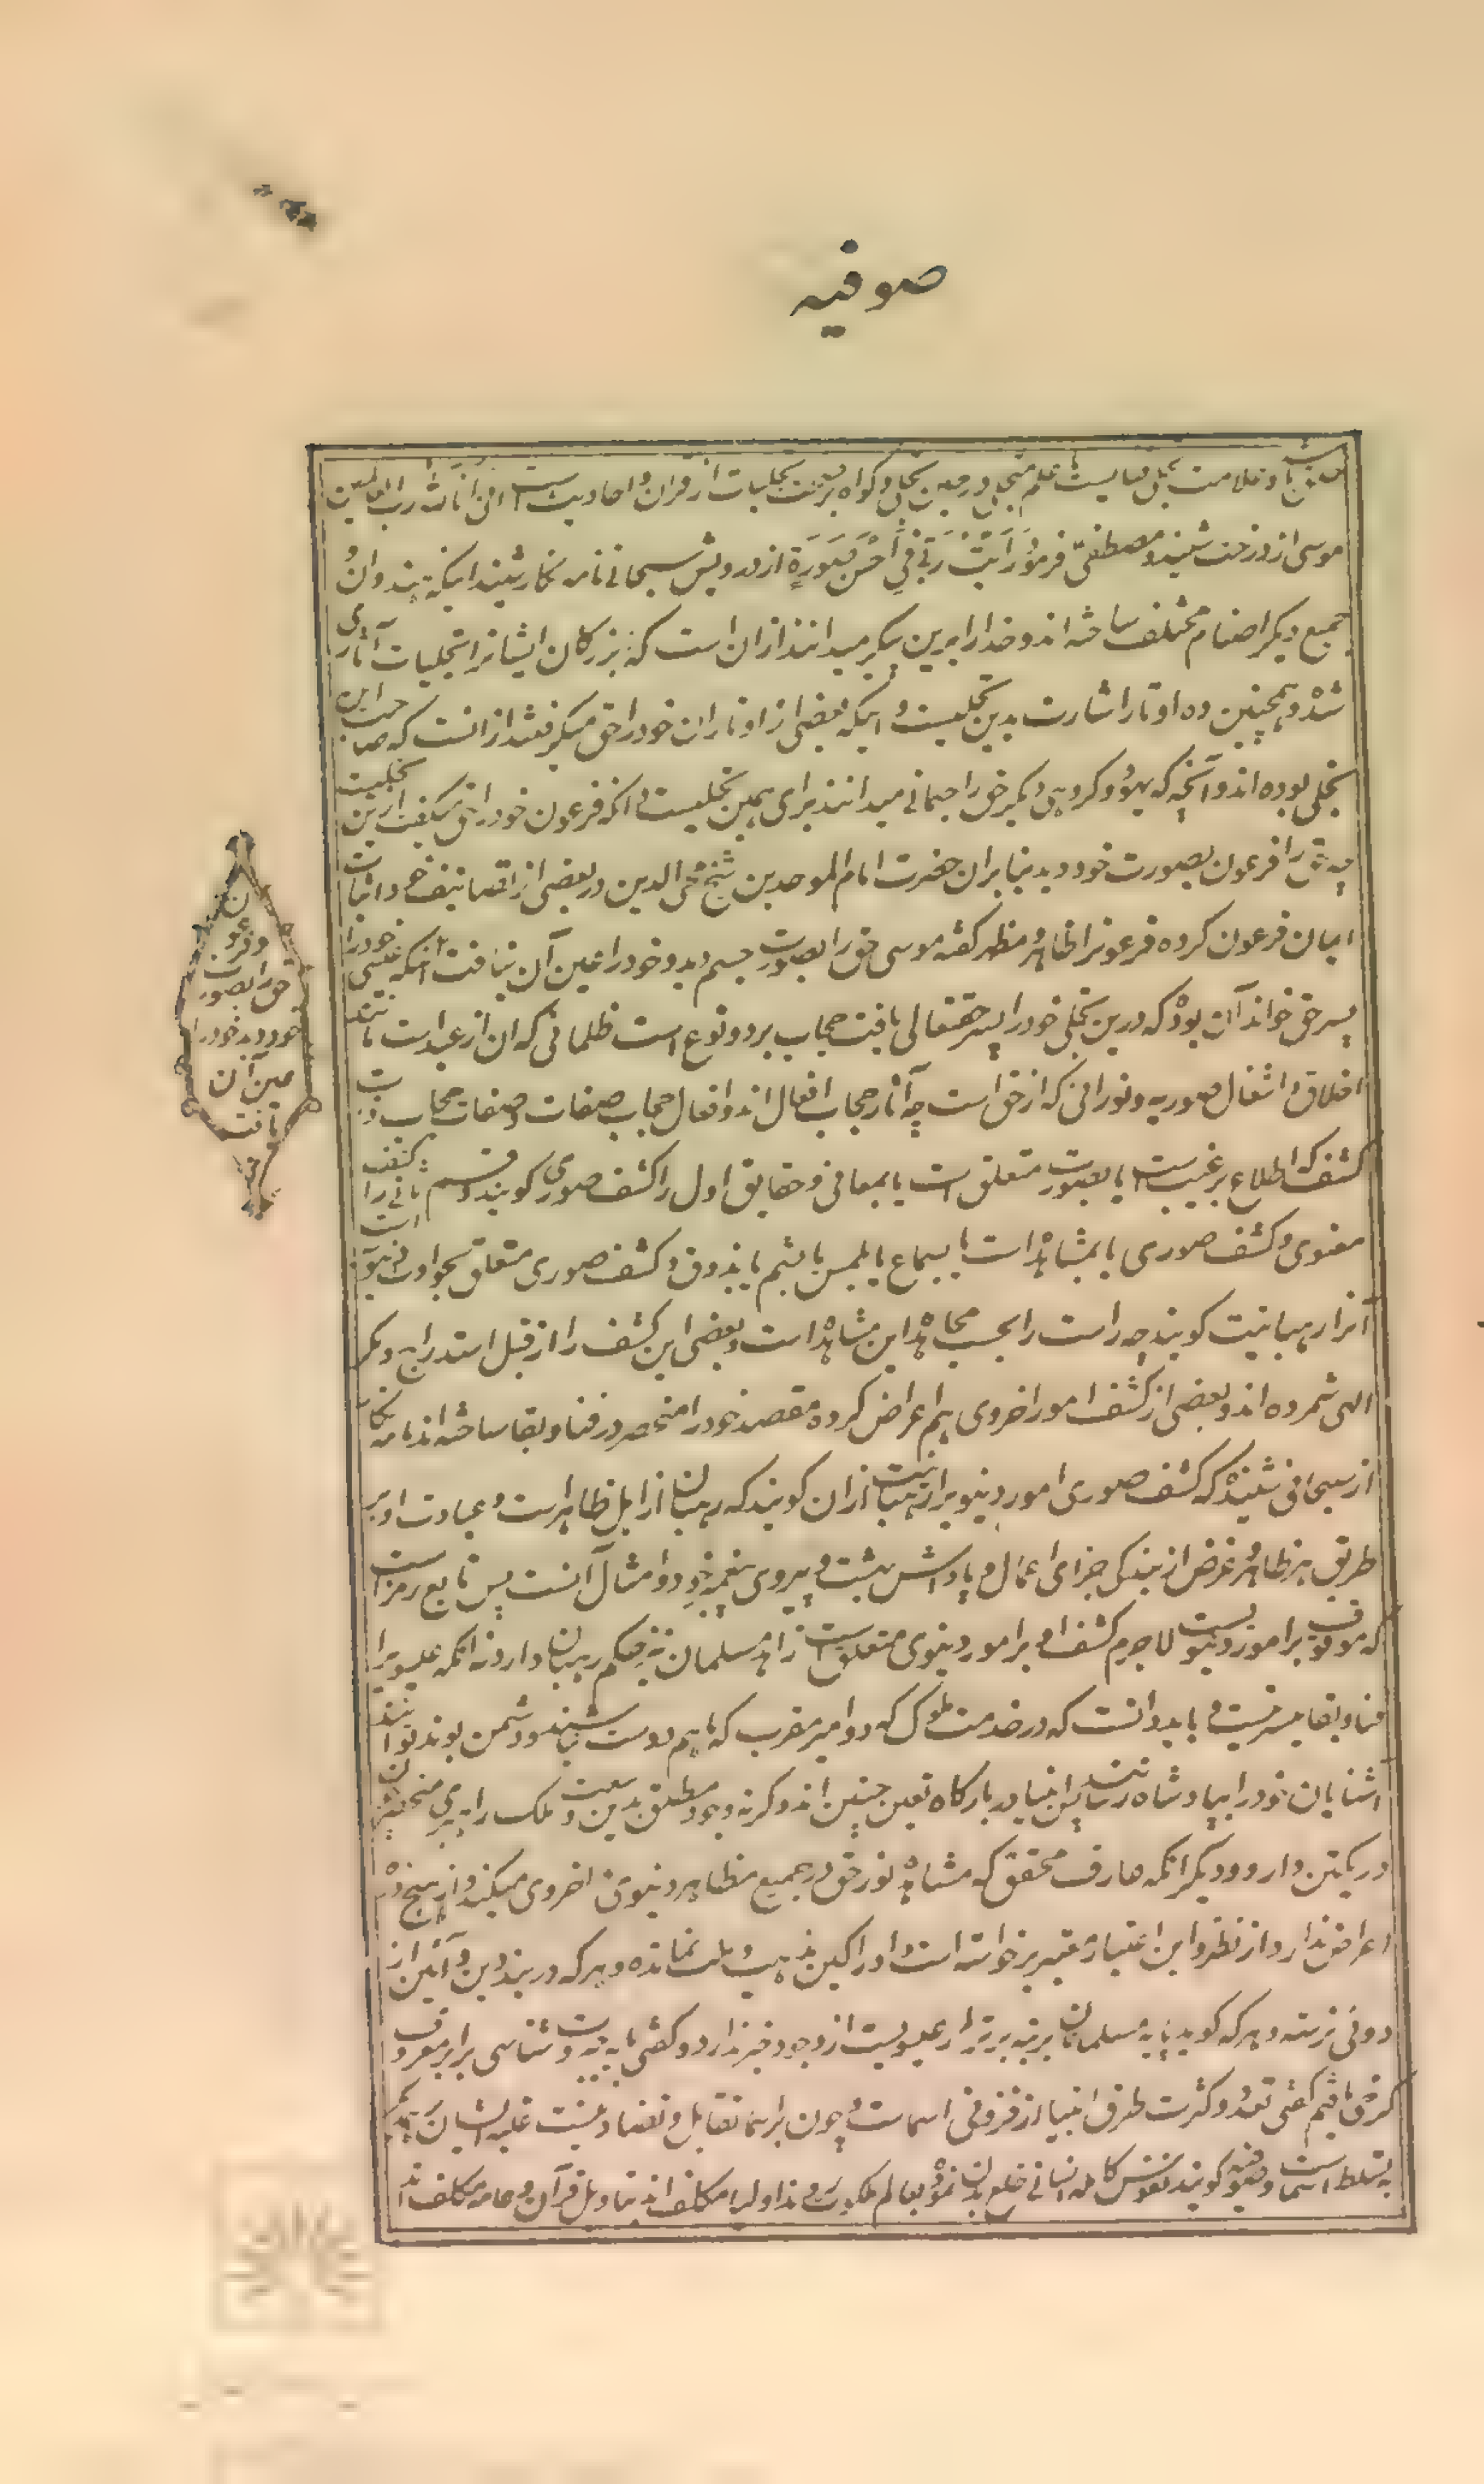 صوفیه
باشد و علامت تجلی فناست یا علم متجلی در حین تجلی و گواه بر تجلیات از قرآن و احادیث است انی انا الله رب العالمین
موسی از درخت شنید و مصطفی فرمود رَأَیتُ رَبّی فی اَحسَنِ صُورَةٍ از درویش سبحانی نامه نگار شنید اینکه هندوان و
جمیع دیگر اصنام مختلف ساخته اند و خدا را برین پیکر میدانند ازان است که بزرگان ایشانرا تجلیات آثاری
شده و همچنین ده اوتار اشارت بدین تجلیست و اینکه بعضی از اوتاران خود را حق میگرفتند ازانست که صاحب این
تجلی بوده اند و آنچه که یهود و گروهی دیگر حق را جسمانی میدانند برای همین تجلیست و آنکه فرعون خود را حق میگفت ازین تجلیست
چه حق را فرعون بصورت خود دید بنابران حضرت امام الموحدین شیخ محی الدین در بعضی از تصانیف خود اثبات
ایمان فرعون کرده فرعونرا ظاهر و مظهر گفته موسی حق را بصورت جسم دید و خود را عین آن نیافت و آنکه عیسی خود را
پسر حق خواند آن بود که درین تجلی خود را پسر حقتعالی یافت حجاب بر دو نوع است ظلمانی که آن از عبد است مانند
اخلاق و اشغال صوریه و نورانی که از حق است چه آثار حجاب افعال اند و افعال حجاب صفات و صفات حجاب ذات
کشف که اطلاع بر غیب است یا بصورت متعلق است یا بمعانی و حقایق اول را کشف صوری گویند و قسم ثانی را کشف
معنوی و کشف صوری یا بمشاهده است یا بسماع یا بلمس یا بشم یا بذوق و کشف صوری متعلق بحوادث دنیوی است
آنرا رهبانیت گویند چه راست را بحسب مجاهده این مشاهده است و بعضی این کشف را از قبل استدراج و مکر
الهی شمرده اند و بعضی از کشف امور اخروی هم اعراض کرده مقصد خود را منحصر در فنا و بقا ساخته اند نامه نگار
از سبحانی شنیده که کشف صوری امور دنیویرا رهبانیت ازان گویند که رهبان از اهل ظاهر است و عبادت او بر
طریق ظاهر و غرض از بندگی جزای اعمال و پاداش بهشت و پیروی پیغمبر خود و امثال آنست پس تابع رمز است
که موقوف بر امور دنیوست لاجرم کشف او بر امور دنیوی متعلق است زاهد مسلمان نیز حکم رهبان دارد نه آنکه عیسویرا
فنا و بقا میسر نیست و باید دانست که در خدمت ملوک که دو امیر مقرب که باهم دوست نباشند و دشمن بوند توانند
آشنایان خود را بپادشاه رسانند پس انبیا در بارگاه تعین چنین اند و گرنه وجود مطلق بدین وسعت و ملک را پیروی منحصر
در یکتن دارد و دیگر آنکه عارف محقق که مشاهده نور حق در جمیع مظاهر دنیوی و اخروی میکند و از هیچ ذره
اعراض ندارد از نظر و این اعتبار تغییر برخواسته است و او را کیش و مذهب و ملت نمانده و هر که در بند دین و آئین از
دوئی نرسته و هر که گوید پایه مسلمانان برتبه برتر از عیسویست از وجود خبر ندارد و کفتی پایه چه وحدت شناسی برابر معروف
کرخی یافتیم گفتی تعدد و کثرت طرق انبیا از فزونی اسماست و چون بر اسما تقابل و تضاد نیست غلبه ایشان بر یکدیگر
به تسلط اسماست و صوفیه گویند نفوس کامله انسانی خلع بدن نموده بعالم ملکوت روند اولیا مکلف اند بتاویل قرآن و عامه مکلف اند
و فرعون
حق را بصورت
خود دید خود را
عین آن
یافت